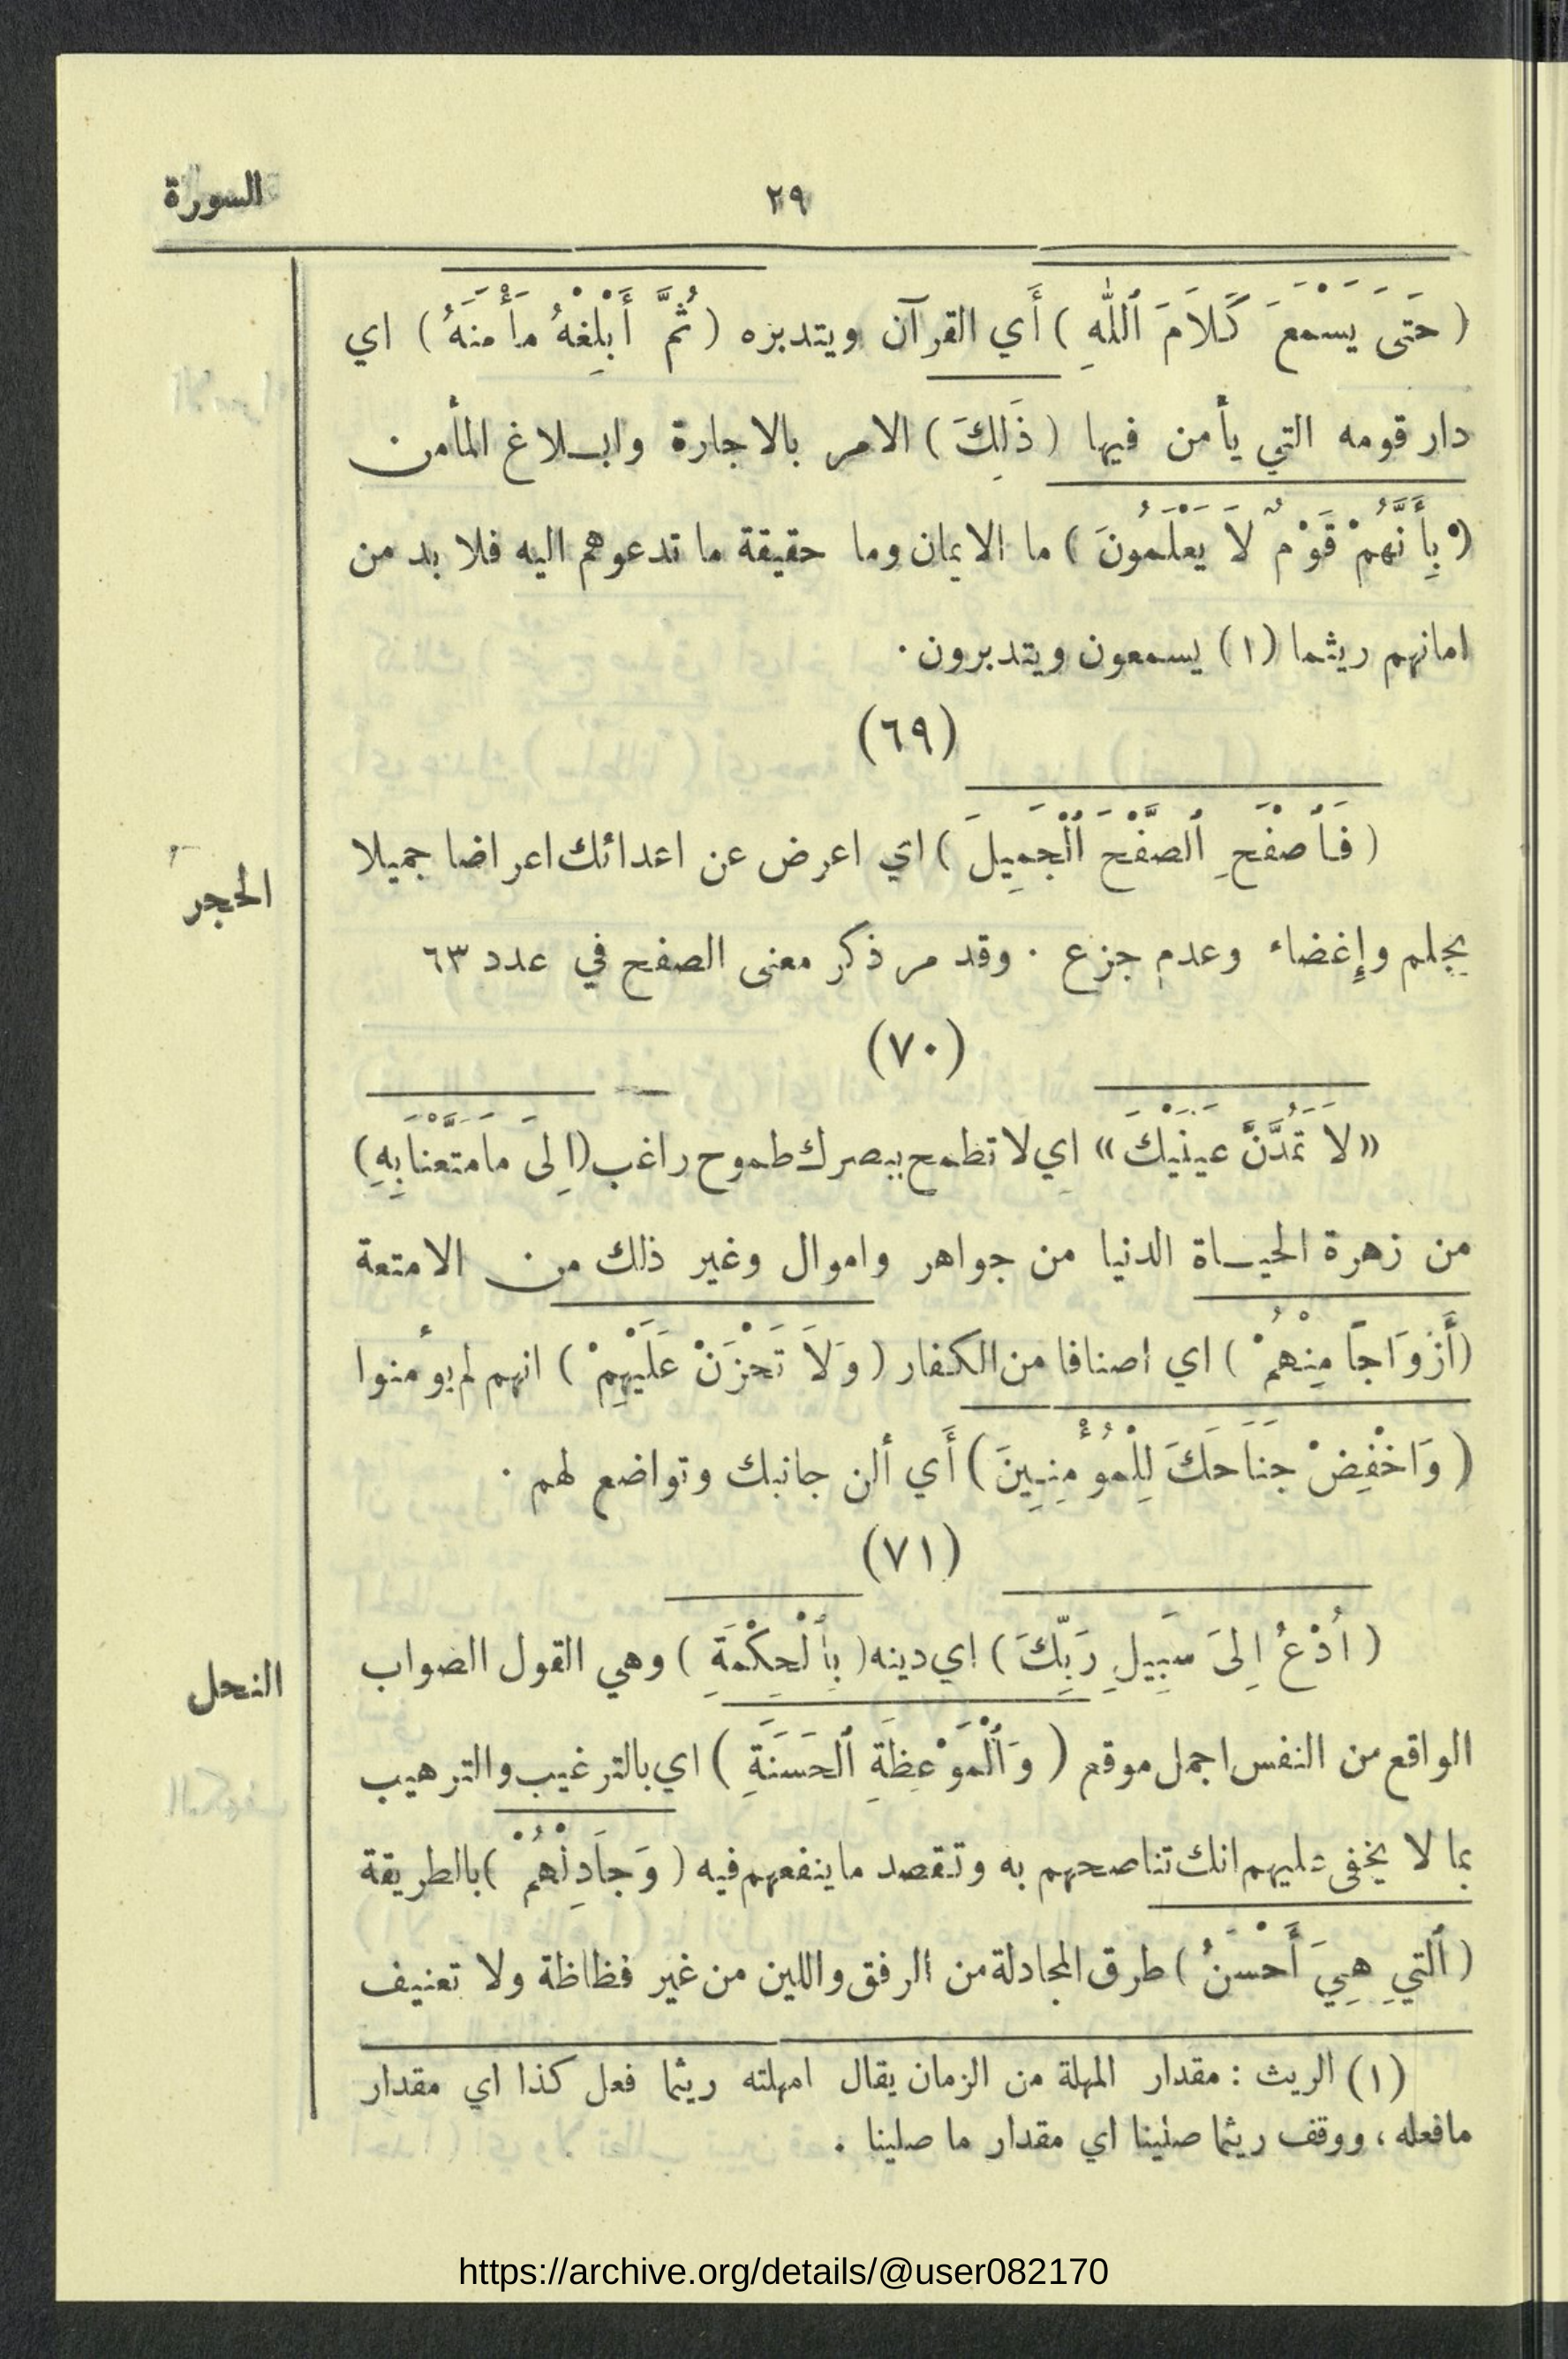 ٢٩
السورة
( حَتى يَسْمعَ كَلَامَ ٱللهِ ) أَي القرآن ويتدبره ( ثُمَّ أَبْلِغْهُ مأْمنَهُ ) اي
دار قومه التي يأمن فيها ( ذَلِكَ ) الامر بالاجارة وابـلاغ المأمن
( بِأَنَّهُمْ قَوْمٌ لاَ يَعْلَمُونَ ) ما الايمان وما حقيقة ما تدعوهم اليه فلا بد من
امانهم ريثما (١) يسمعون ويتدبرون .
(٦٩)
الحجر
( فَٱصْفَحِ ٱلصَّفْحَ ٱلْجَمِيلَ ) اي اعرض عن اعدائك اعراضا جميلا
بحلم وإغضاء وعدم جزع . وقد مر ذكر معنى الصفح في عدد ٦٣
(٧٠)
«لاَ تَمُدَّنَّ عَينَيْكَ» اي لا تطمح ببصرك طموح راغب (اِلىَ مَا مَتَّعْنَا بِهِ)
من زهرة الحيـاة الدنيا من جواهر واموال وغير ذلك من الامتعة
(أَزْوَاجًا مِنْهُمْ ) اي اصنافا من الكفار ( وَلاَ تَحْزَنْ عَلَيْهِمْ ) انهم لم يؤمنوا
( وَاخْفِضْ جَنَاحَكَ لِلْمُؤْمِنِينَ ) أَي ألن جانبك وتواضع لهم .
(٧١)
النحل
( اُدْعُ اِلىَ سَبِيلِ رَبِّكَ ) اي دينه ( بِٱلْحِكْمَةِ ) وهي القول الصواب
الواقع من النفس اجمل موقع ( وَٱلْمَوْعِظَةِ ٱلحَسَنَةِ ) اي بالترغيب والترهيب
بما لا يخفى عليهم انك تناصحهم به وتقصد ما ينفعهم فيه ( وَجَادِلْهُمْ ) بالطريقة
( ٱلتيِ هِيَ أَحْسَنُ ) طرق المجادلة من الرفق واللين من غير فظاظة ولا تعنيف
(١) الريث : مقدار المهلة من الزمان يقال امهلته ريثما فعل كذا اي مقدار
مافعله ، ووقف ريثما صلينا اي مقدار ما صلينا .
https://archive.org/details/@user082170